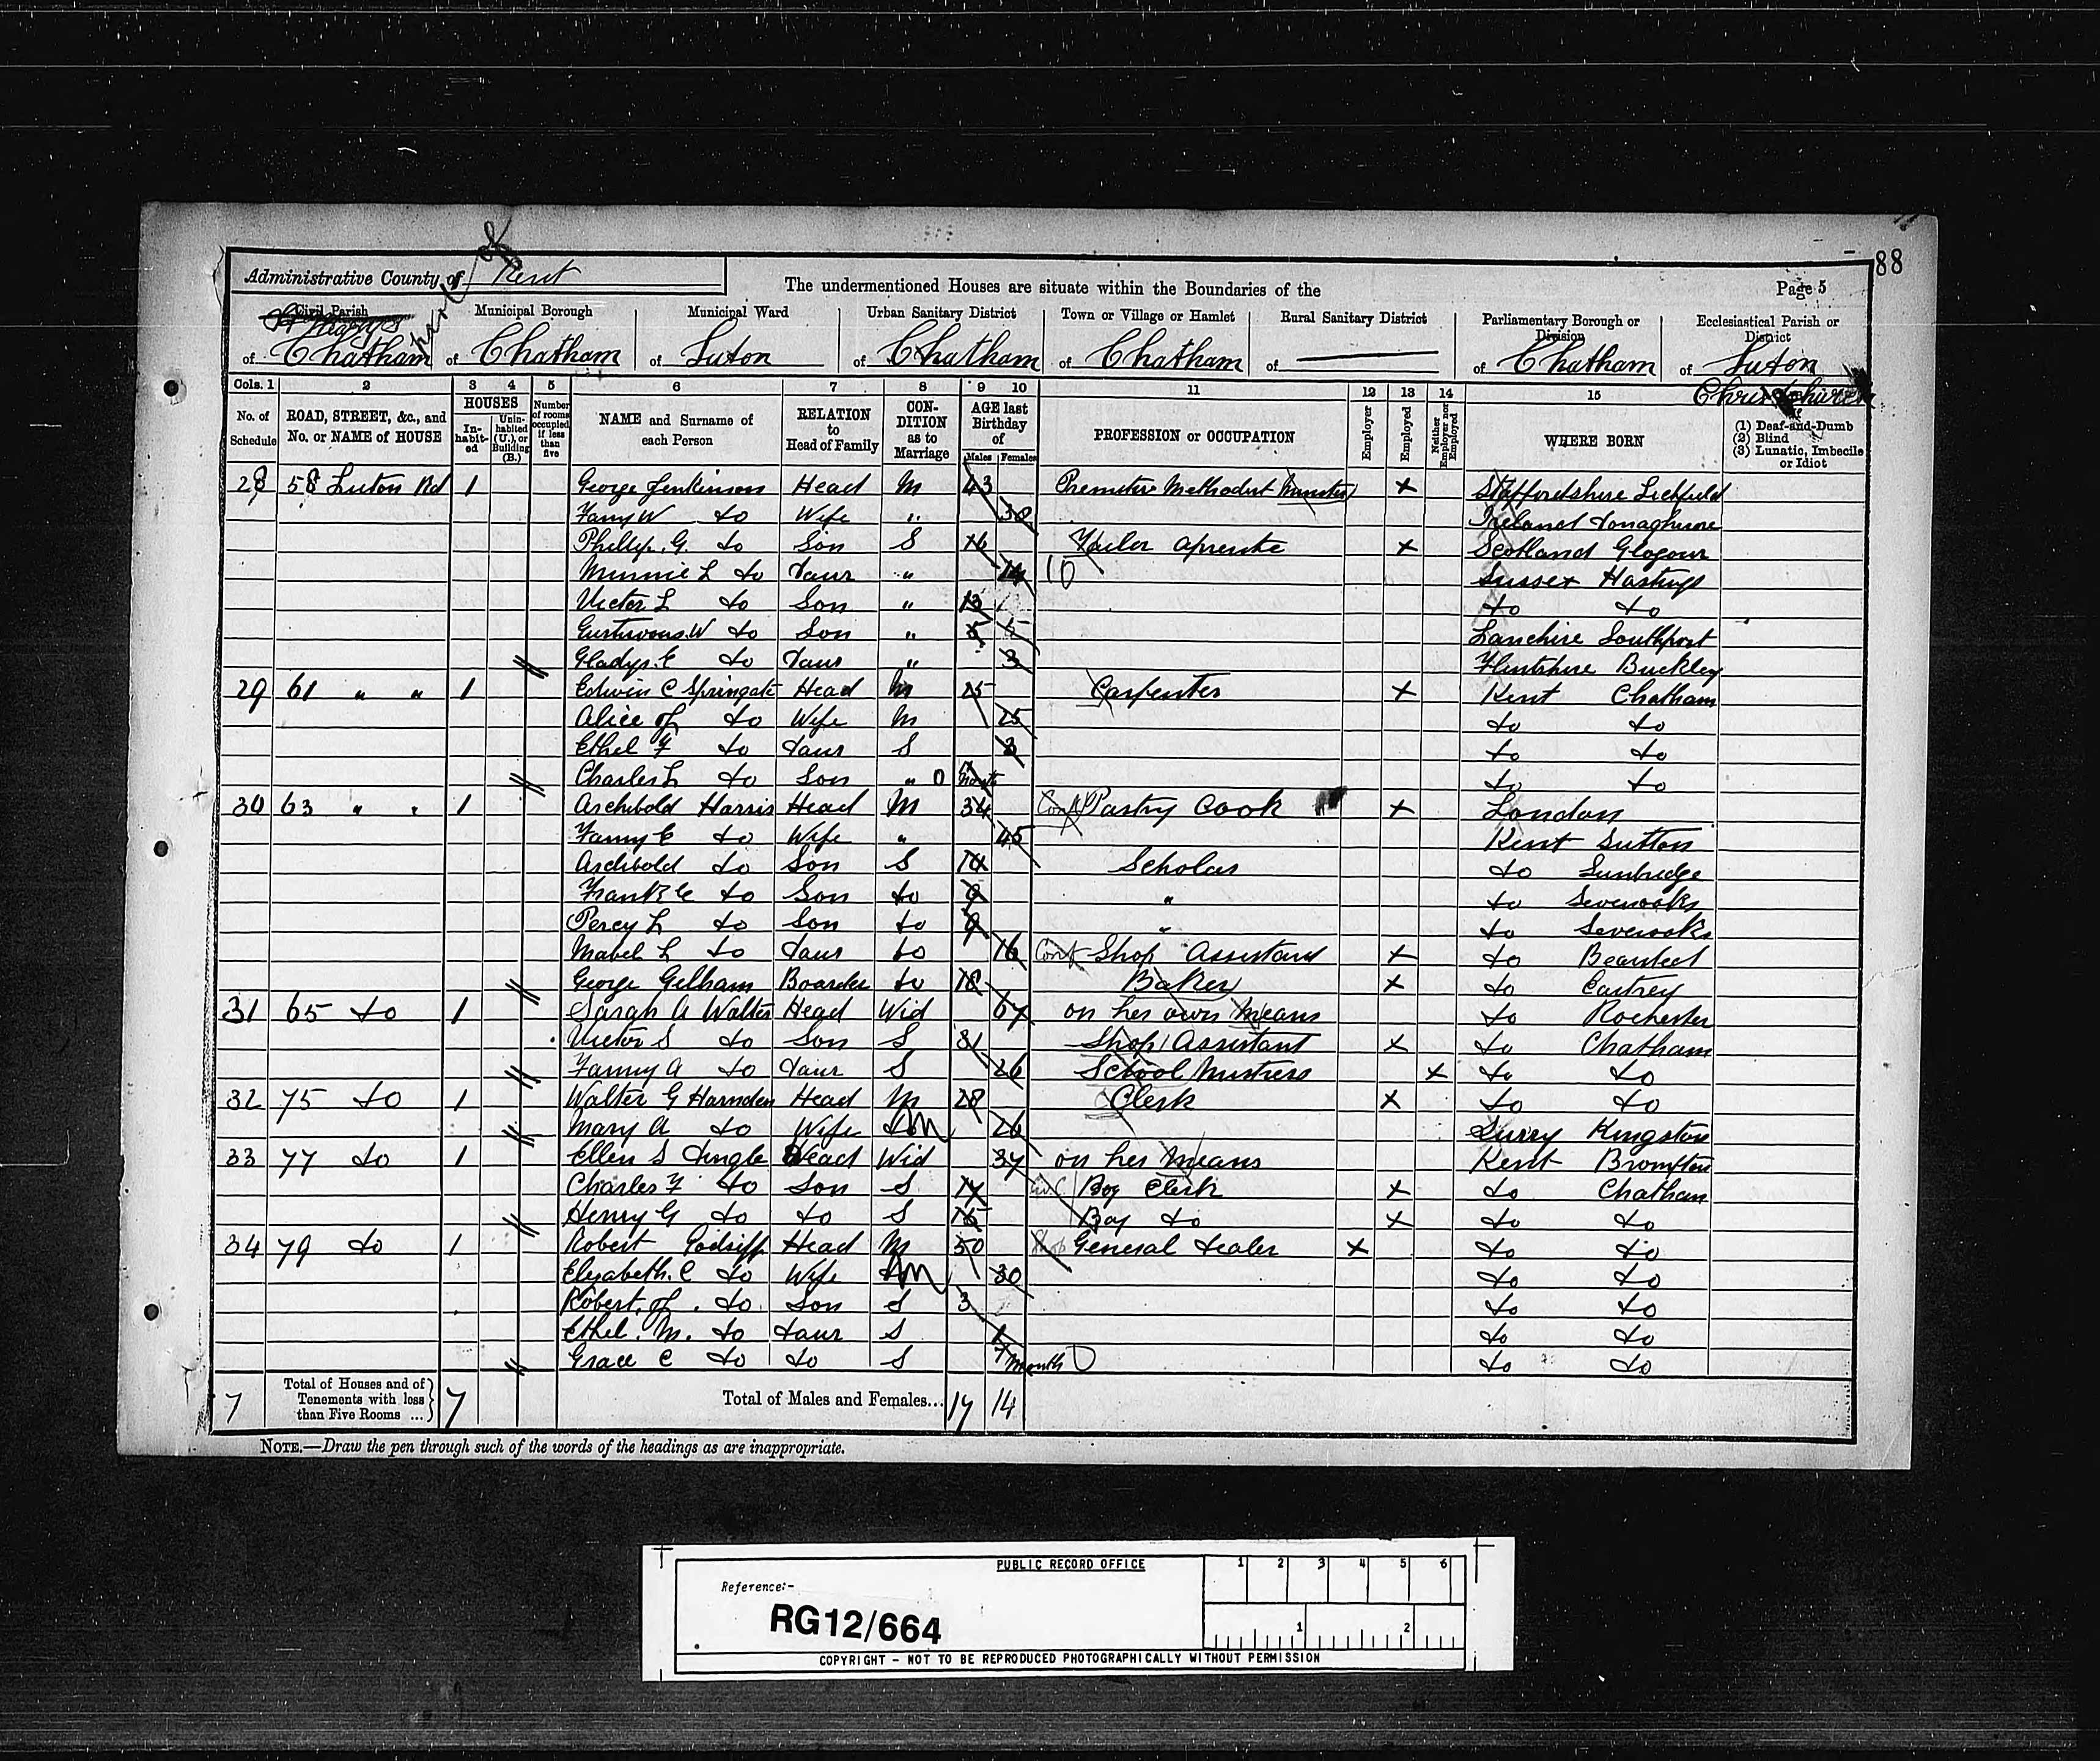 88
Administrative County of Kent
The undermentioned Houses are situate within the Boundaries of the
Page 5
Civil Parish
of Chatham
Municipal Borough
of Chatham
Municipal Ward
of Luton
Urban Sanitary District
of Chatham
Town or Village or Hamlet
of Chatham
Rural Sanitary District
of
Parliamentary Borough or Division
of Chatham
Ecclesiastical Parish or District
of Luton
Cols. 1 2 3 4 5 6 7 8 9 10 11 12 13 14 15
No. of Schedule
ROAD, STREET, &c., and No. or NAME of HOUSE
HOUSES
In-habit-ed
Unin-habited (U.), or Building (B.)
Number of rooms occupied if less than five
NAME and Surname of each Person
RELATION to Head of Family
CON-DITION as to Marriage
AGE last Birthday of
Males Females
PROFESSION or OCCUPATION
Employer
Employed
Neither Employer nor Employed
WHERE BORN
(1) Deaf-and-Dumb
(2) Blind
(3) Lunatic, Imbecile or Idiot
28 58 Luton Rd 1 George Jenkinson Head M 43 Premetive Methodist Minister X Staffordshire Lichfield
Fany W do Wife " 38 Ireland Donaghmore
Phillip. G. do Son S 16 Tailor Aprentice X Scotland Glogour
Minnie L do Daur " 14 Sussex Hastings
Victor L do Son " 13 do do
Gustavous. W do Son " 5 Lanchire Southport
Gladys. E do Daur " 3 Flintshire Buckley
29 61 " " 1 Edwin C Springate Head M 25 Carpenter X Kent Chatham
Alice do Wife M 25 do do
Ethel F do Daur S 3 do do
Charles L do Son " Months do do
30 63 " " 1 Archibold Harris Head M 34 Conf Pastry Cook X London
Fanny E do Wife " 45 Kent Sutton
Archibold do Son S 14 Scholar do Sunbridge
Frank C do Son do 9 " do Sevenoaks
Percy L do Son do 9 " do Sevenoaks
Mabel L do Daur do 16 Conf Shop Assistant X do
George Gelham Boarder do 18 Baker X do Eastrey
31 65 do 1 Sarah A Walter Head Wid 67 on her own Means do Rochester
Victor S do Son S 31 Shop Assistant X do Chatham
Fanny A do Daur S 26 School Mistress X do do
32 75 do 1 Walter G Harnden Head M 28 Clerk X do do
Mary A do Wife M 26 Surry Kingston
33 77 do 1 Ellen S Dingle Head Wid 37 on her Means Kent Brompton
Charles F do Son S 17 Boy Clerk X do Chatham
Henry G do do S 15 Boy do X do do
34 79 do 1 Robert Godsiff Head M 50 Shop General Dealer X do do
Elizabeth. C do Wife M 30 do do
Robert. do Son S 3 do do
Ethel. M. do Daur S 1 do do
Grace C do do S Month do do
7 Total of Houses and of Tenements with less than Five Rooms ... 7 Total of Males and Females... 17 14
NOTE.—Draw the pen through such of the words of the headings as are inappropriate.
PUBLIC RECORD OFFICE
1 2 3 4 5 6
Reference:-
RG12/664
1 2
COPYRIGHT - NOT TO BE REPRODUCED PHOTOGRAPHICALLY WITHOUT PERMISSION